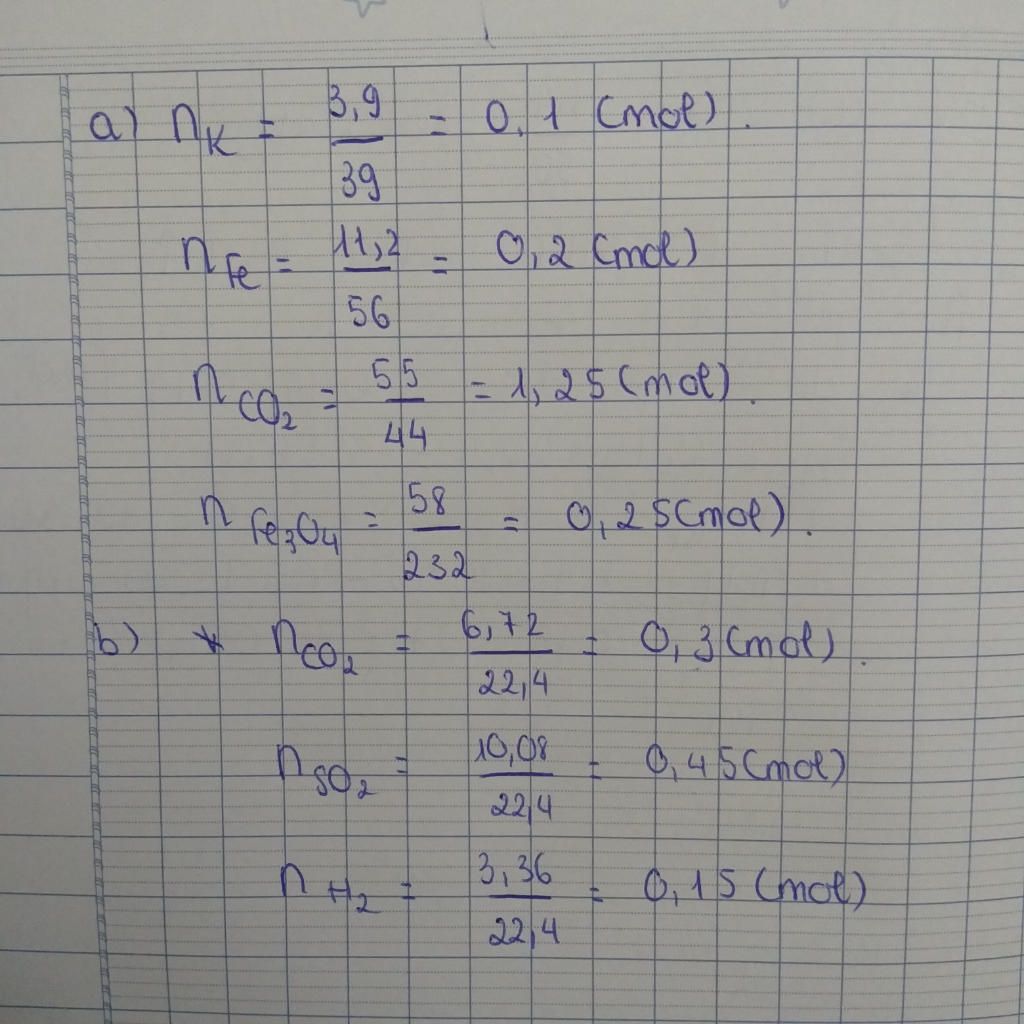 a) n_K = 3,9/39 = 0,1 (mol).
n_Fe = 11,2/56 = 0,2 (mol)
n_CO₂ = 55/44 = 1,25 (mol).
n_Fe₃O₄ = 58/232 = 0,25 (mol).
b) * n_CO₂ = 6,72/22,4 = 0,3 (mol).
n_SO₂ = 10,08/22,4 = 0,45 (mol)
n_H₂ = 3,36/22,4 = 0,15 (mol)